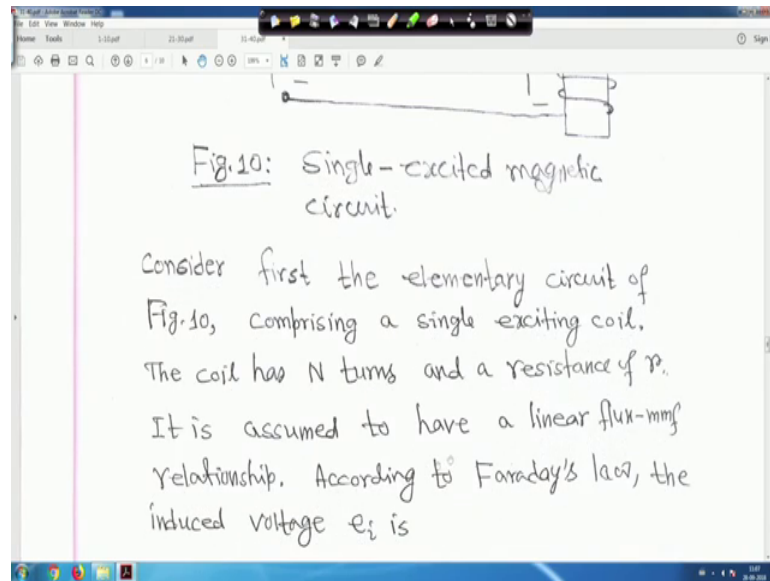 31-40.pdf - Adobe Acrobat Reader DC
File Edit View Window Help
Home Tools 1-10.pdf 21-30.pdf 31-40.pdf × Sign
Fig.10: Single-excited magnetic
circuit.
Consider first the elementary circuit of
Fig.10, comprising a single exciting coil.
The coil has N turns and a resistance of r.
It is assumed to have a linear flux-mmf
relationship. According to Faraday's law, the
induced voltage ei is